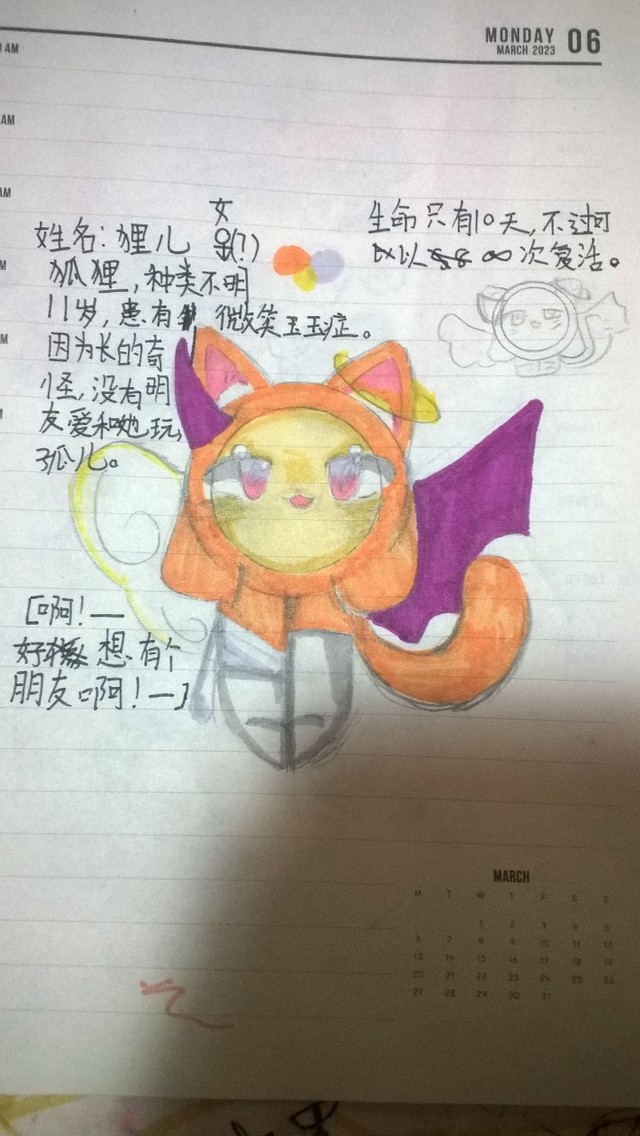 MONDAY 06
MARCH 2023
AM
AM
AM
M
M
女
姓名：狸儿 (?)
狐狸，种类不明
11岁，患有 微笑玉玉症。
因为长的奇
怪，没有明
友爱和她玩，
孤儿。
生命只有10天，不过可
以 ∞次复活。
[啊！—
好 想 有个
朋友啊！—]
MARCH
M T W T F S S
1 2 3 4 5
6 7 8 9 10 11 12
13 14 15 16 17 18 19
20 21 22 23 24 25 26
27 28 29 30 31